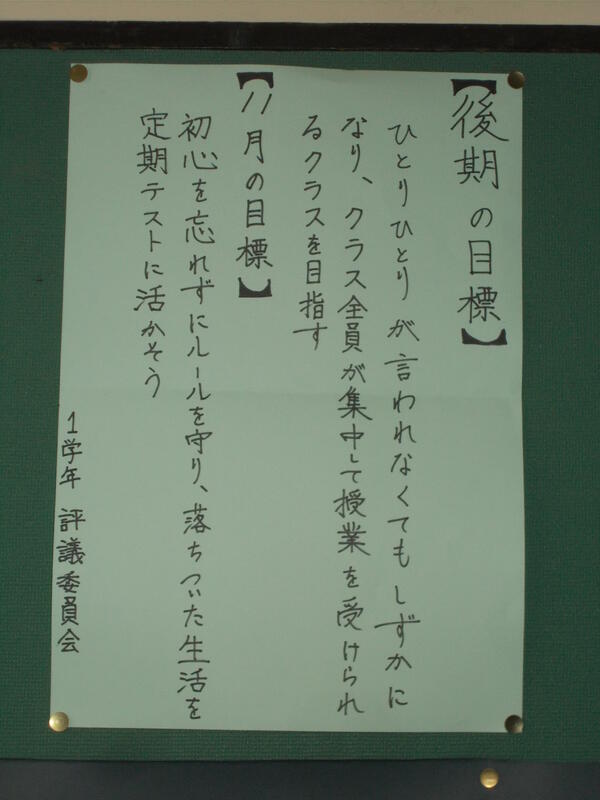 【後期の目標】
ひとりひとりが言われなくてもしずかに
なり、クラス全員が集中して授業を受けられ
るクラスを目指す
【11月の目標】
初心を忘れずにルールを守り、落ちついた生活を
定期テストに活かそう
1学年 評議委員会